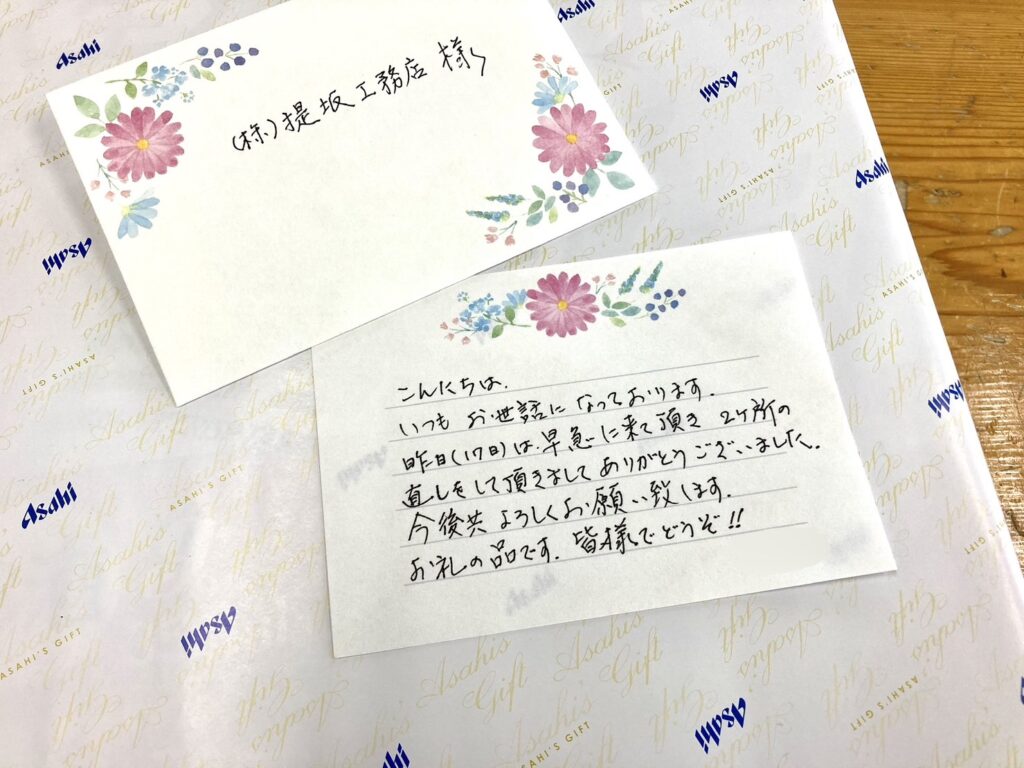 (株)提坂工務店 様
こんにちは.
いつも お世話に なっております.
昨日(17日)は 早急に来て頂き 2ヶ所の
直しをして頂きまして ありがとうございました.
今後共 よろしくお願い致します.
お礼の品です. 皆様でどうぞ!!
Asahi
Asahi
Asahi
Asahi
Asahi
Asahi
Asahi
Asahi
Asahi
Asahi
Asahi's Gift
Asahi's Gift
Asahi's Gift
ASAHI'S GIFT
ASAHI'S GIFT
ASAHI'S GIFT
ASAHI'S GIFT